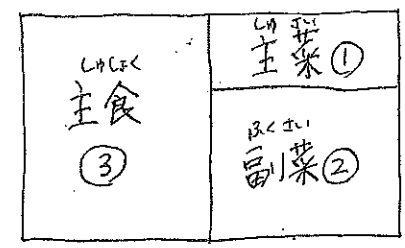 しゅしょく
主食
③
しゅ さい
主菜①
ふくさい
副菜②